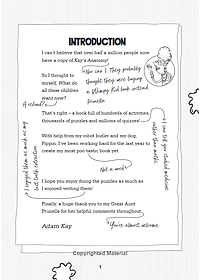 INTRODUCTION
I can't believe that over half a million people now
have a copy of Kay's Anatomy!
How can I. They probably
thought they were buying
a Wimpy Kid book instead.
Prunella
So I thought
to myself,
What do all
these children
want now?
A refund?
That's right – a book full of hundreds of activities,
thousands of puzzles and millions of quizzes!
I can tell you studied medicine
rather than maths.
With help from my robot butler and my dog,
Pippin, I've been working hard for the last week to
create my most poo-tastic book yet.
Not a word.
I hope you enjoy doing the puzzles as much as
I enjoyed writing them!
I enjoyed them as much as my
last tooth extraction.
Finally, a huge thank you to my Great Aunt
Prunella for her helpful comments throughout.
You're almost welcome.
Adam Kay
1
Copyrighted Material